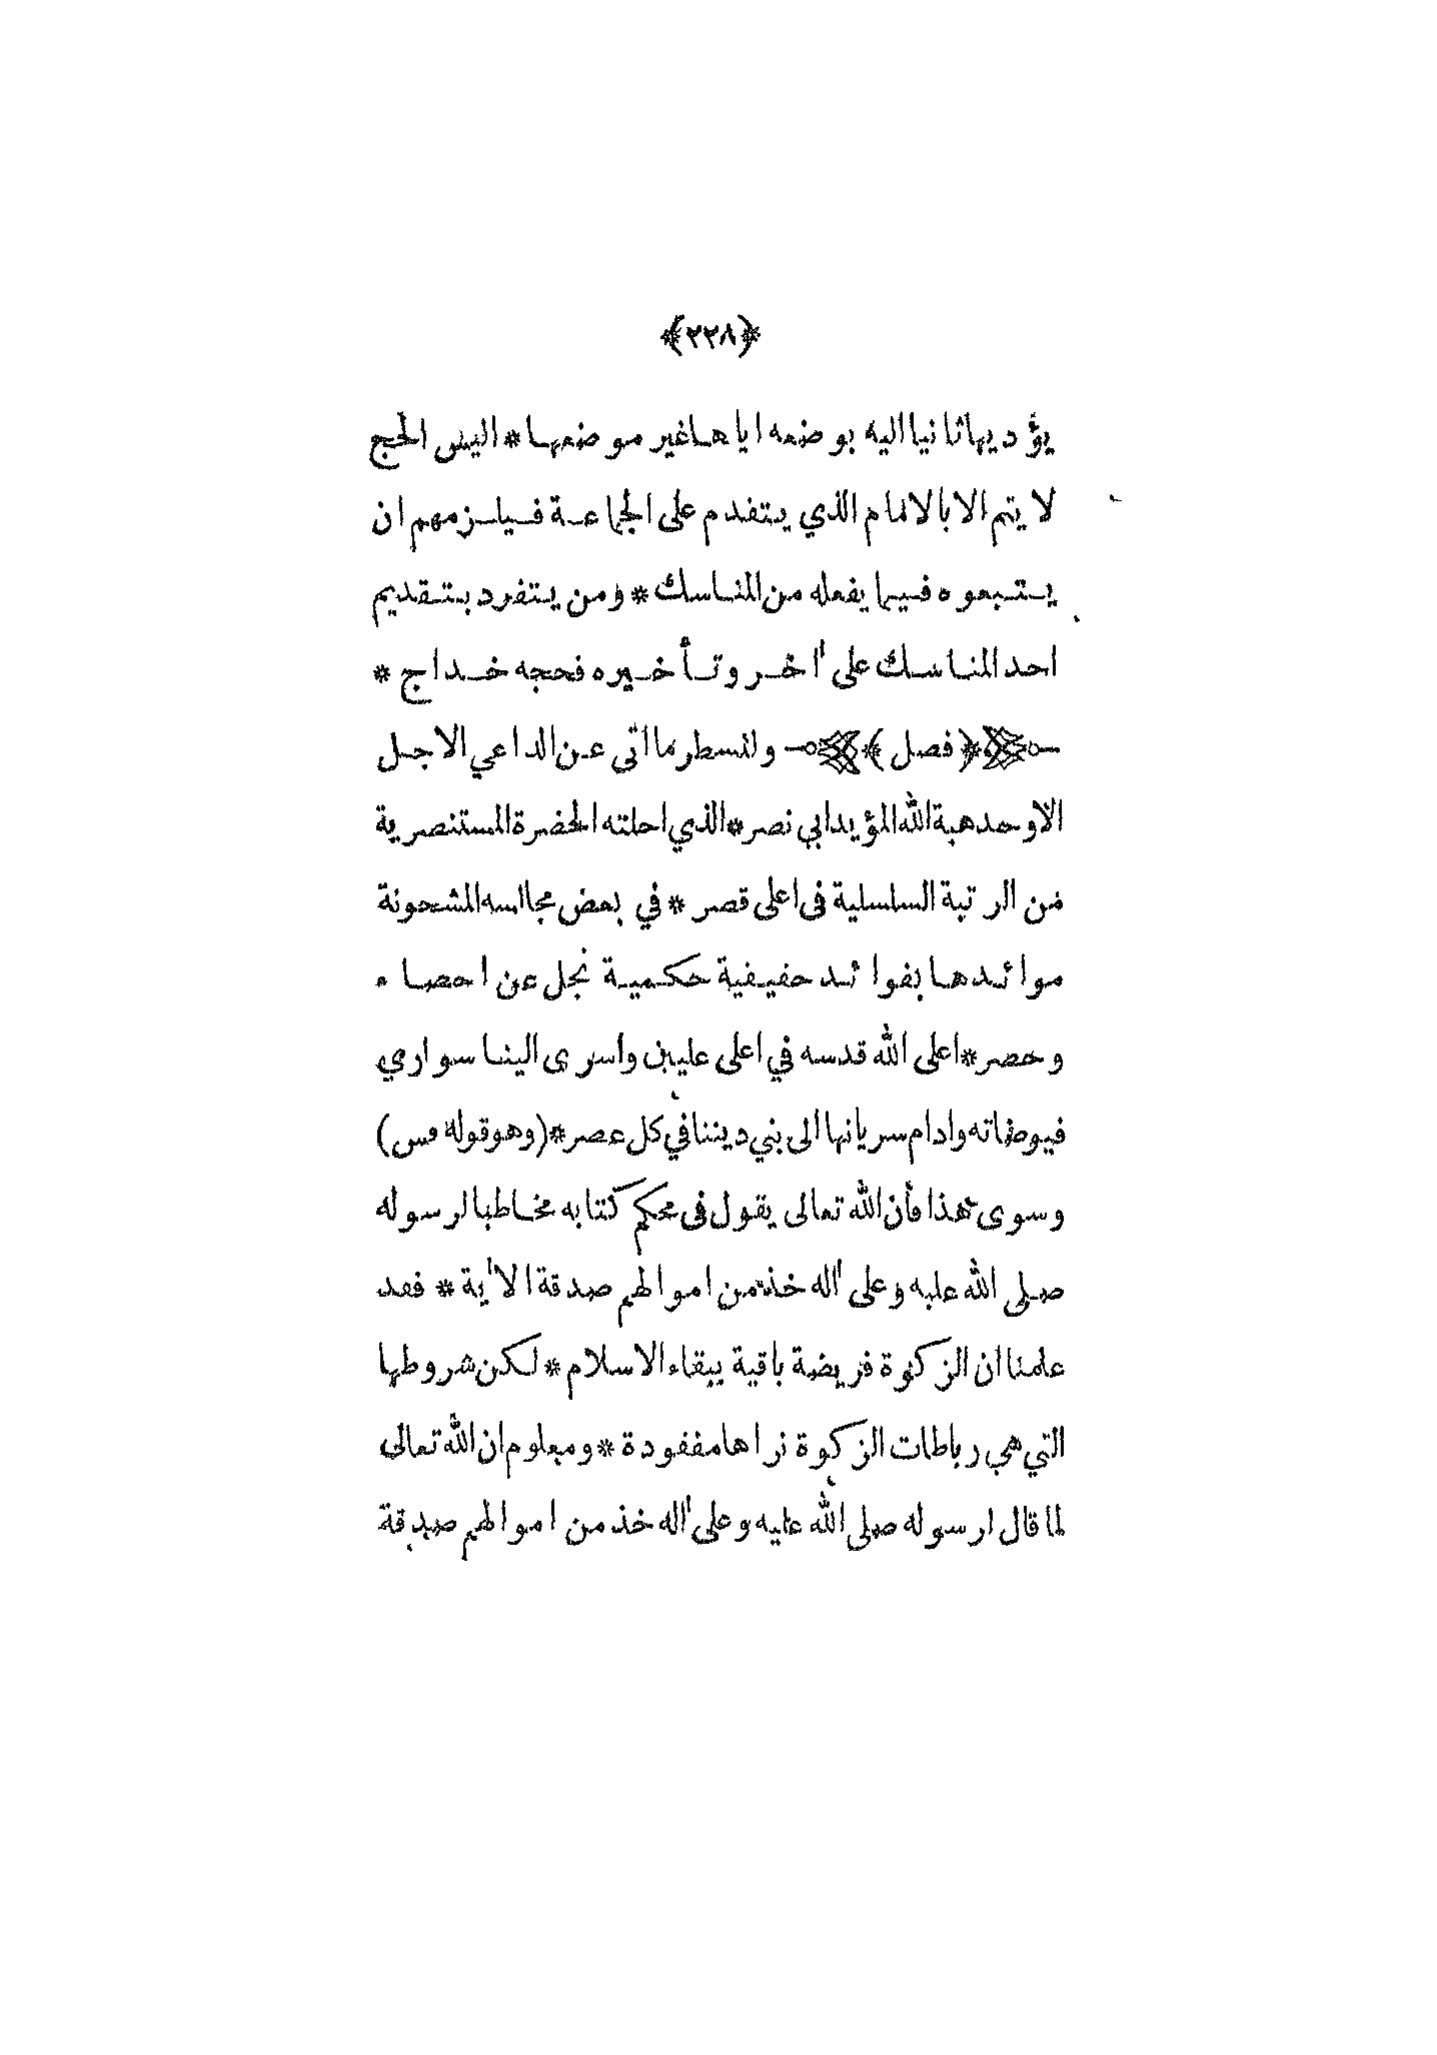 ﴿٢٢٨﴾
يؤديها ثانيا اليه بوضعه اياها غير موضعها * اليس الحج
لا يتم الا بالامام الذي يتقدم على الجماعة فيلزمهم ان
يتبعوه فيما يفعله من المناسك * ومن يتفرد بتقديم
احد المناسك على اٰخر وتأخيره فحجه خداج *
﴿فصل﴾ ولنسطر ما اتى عن الداعي الاجل
الاوحد هبة الله المؤيد ابي نصر * الذي احلته الحضرة المستنصرية
من الرتبة السلسلية فى اعلى قصر * في بعض مجالسه المشحونة
موائدها بفوائد حقيقية حكمية تجل عن احصاء
وحصر * اعلى الله قدسه في اعلى عليين واسرى الينا سواري
فيوضاته وادام سريانها الى بني ديننا في كل عصر * (وهو قوله قس)
وسوى هذا فأن الله تعالى يقول فى محكم كتابه مخاطبا لرسوله
صلى الله عليه وعلى اٰله خذ من اموالهم صدقة الاٰية * فقد
علمنا ان الزكوة فريضة باقية ببقاء الاسلام * لكن شروطها
التي هي رباطات الزكوة نراها مفقودة * ومعلوم ان الله تعالى
لما قال لرسوله صلى الله عليه وعلى اٰله خذ من اموالهم صدقة